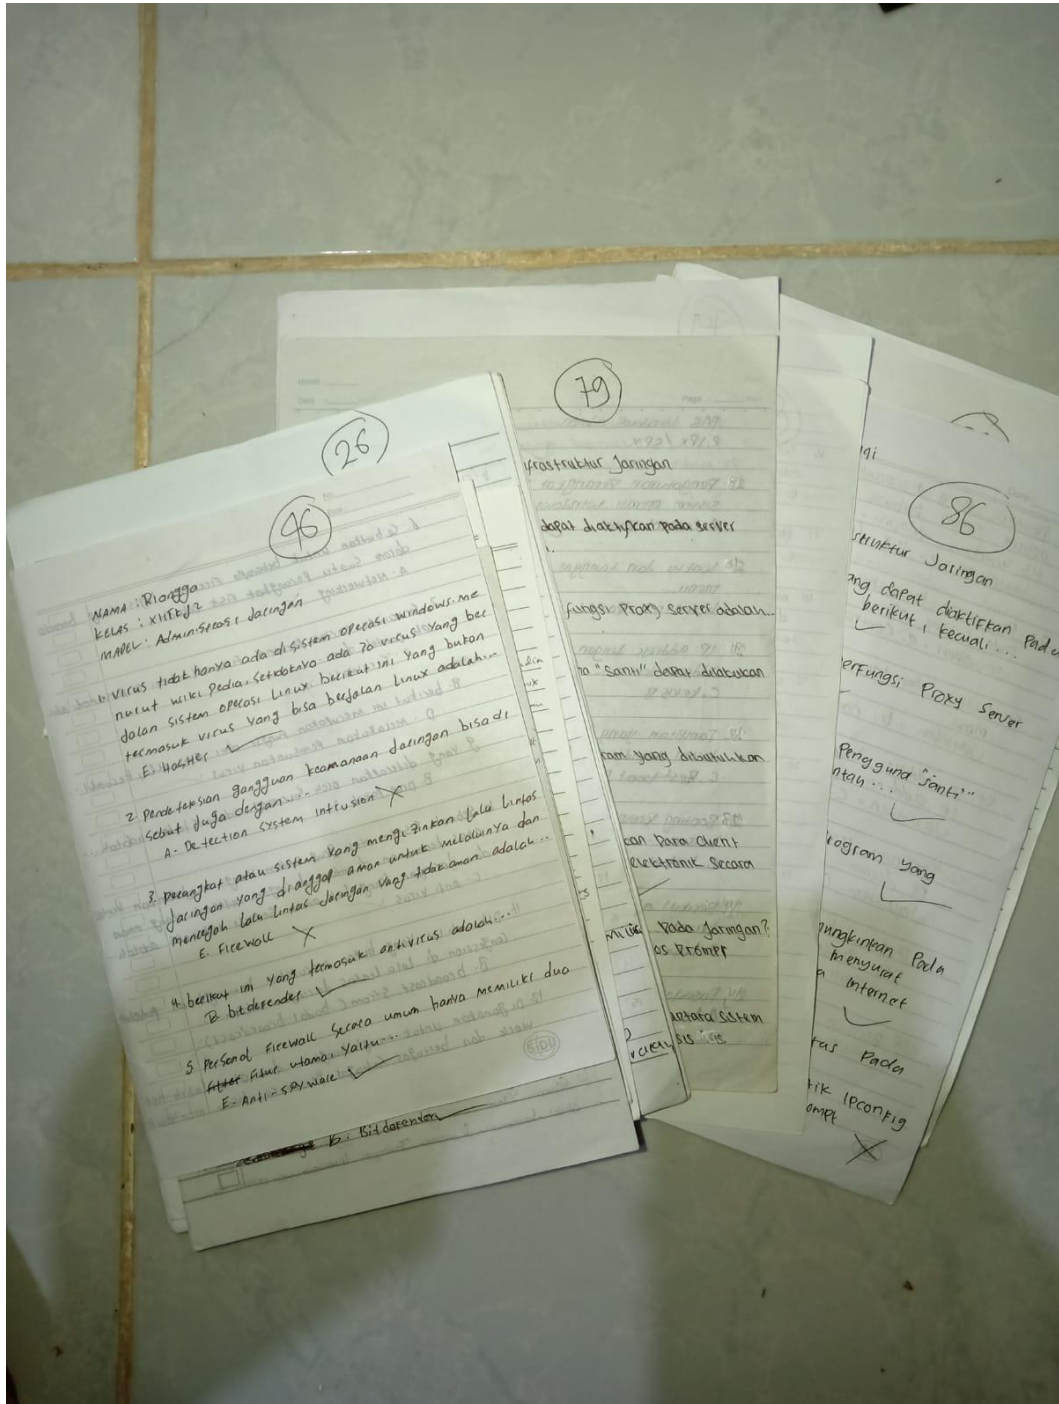 26
46
NAMA : Riangga
KELAS : XII TKJ 2
MAPEL : Administrasi Jaringan
1. Virus tidak hanya ada di sistem operasi windows. me
nurut wiki Pedia, setidaknya ada 30 virus yang ber
jalan sistem operasi Linux. berikut ini yang bukan
termasuk virus yang bisa berjalan Linux adalah...
E.
2. Pendeteksian gangguan keamanaan Jaringan bisa di
sebut juga dengan...
A. Detection system intrusion
3. perangkat atau sistem yang mengizinkan lalu lintas
jaringan yang dianggap aman untuk melaluinya dan
mencegah lalu lintas jaringan yang tidak aman adalah...
E. Firewall
4. berikut ini yang termasuk antivirus adalah...
B. bitdefender
5. Personal Firewall secara umum hanya memiliki dua
fitur utama, yaitu...
E. Anti-spyware
SIDU
B. Bitdefender
79
frastruktur Jaringan
dapat diaktifkan pada server
fungsi Proxy server adalah...
na "santi" dapat dilakukan
ram yang dibutuhkan
kan Para Client
elektronik secara
pada jaringan?
os Prompt
antara sistem
86
struktur Jaringan
ang dapat diaktifkan pada
berikut, kecuali...
erfungsi Proxy Server
Pengguna "santi"
ntah...
rogram yang
mungkinkan Pada
menyurat
a internet
tas Pada
tik ipconfig
ompt